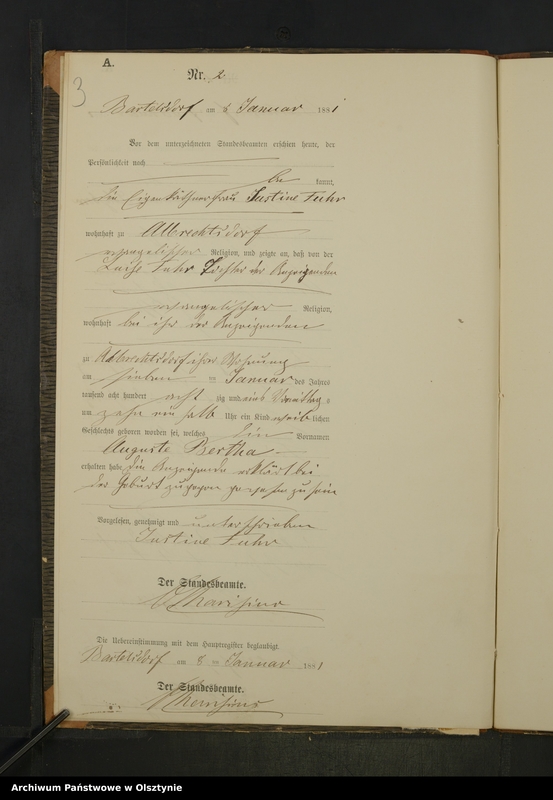 A.
3
Nr. 2
Bartelsdorf am 8 Januar 1881
Vor dem unterzeichneten Standesbeamten erschien heute, der
Persönlichkeit nach
be kannt,
die Eigenkäthnerfrau Justine Fuhr
wohnhaft zu Albrechtsdorf
evangelischer Religion, und zeigte an, daß von der
Luise Fuhr Tochter der Anzeigenden
evangelischer Religion,
wohnhaft bei ihr der Anzeigenden
zu Albrechtsdorf ihrer Wohnung
am sieben ten Januar des Jahres
tausend acht hundert acht zig und eins Vormittag s
um zehn ein halb Uhr ein Kind weib lichen
Geschlechts geboren worden sei, welches die Vornamen
Auguste Bertha
erhalten habe die Anzeigende erklärt bei
der Geburt zugegen gewesen zu sein
Vorgelesen, genehmigt und unterschrieben
Justine Fuhr
Der Standesbeamte.
Die Uebereinstimmung mit dem Hauptregister beglaubigt.
Bartelsdorf am 8 ten Januar 1881
Der Standesbeamte.
Archiwum Państwowe w Olsztynie